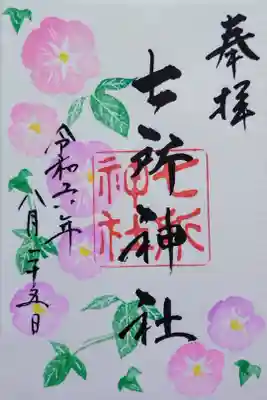 奉拝
七所神社
七所
神社
令和六年
八月二十五日